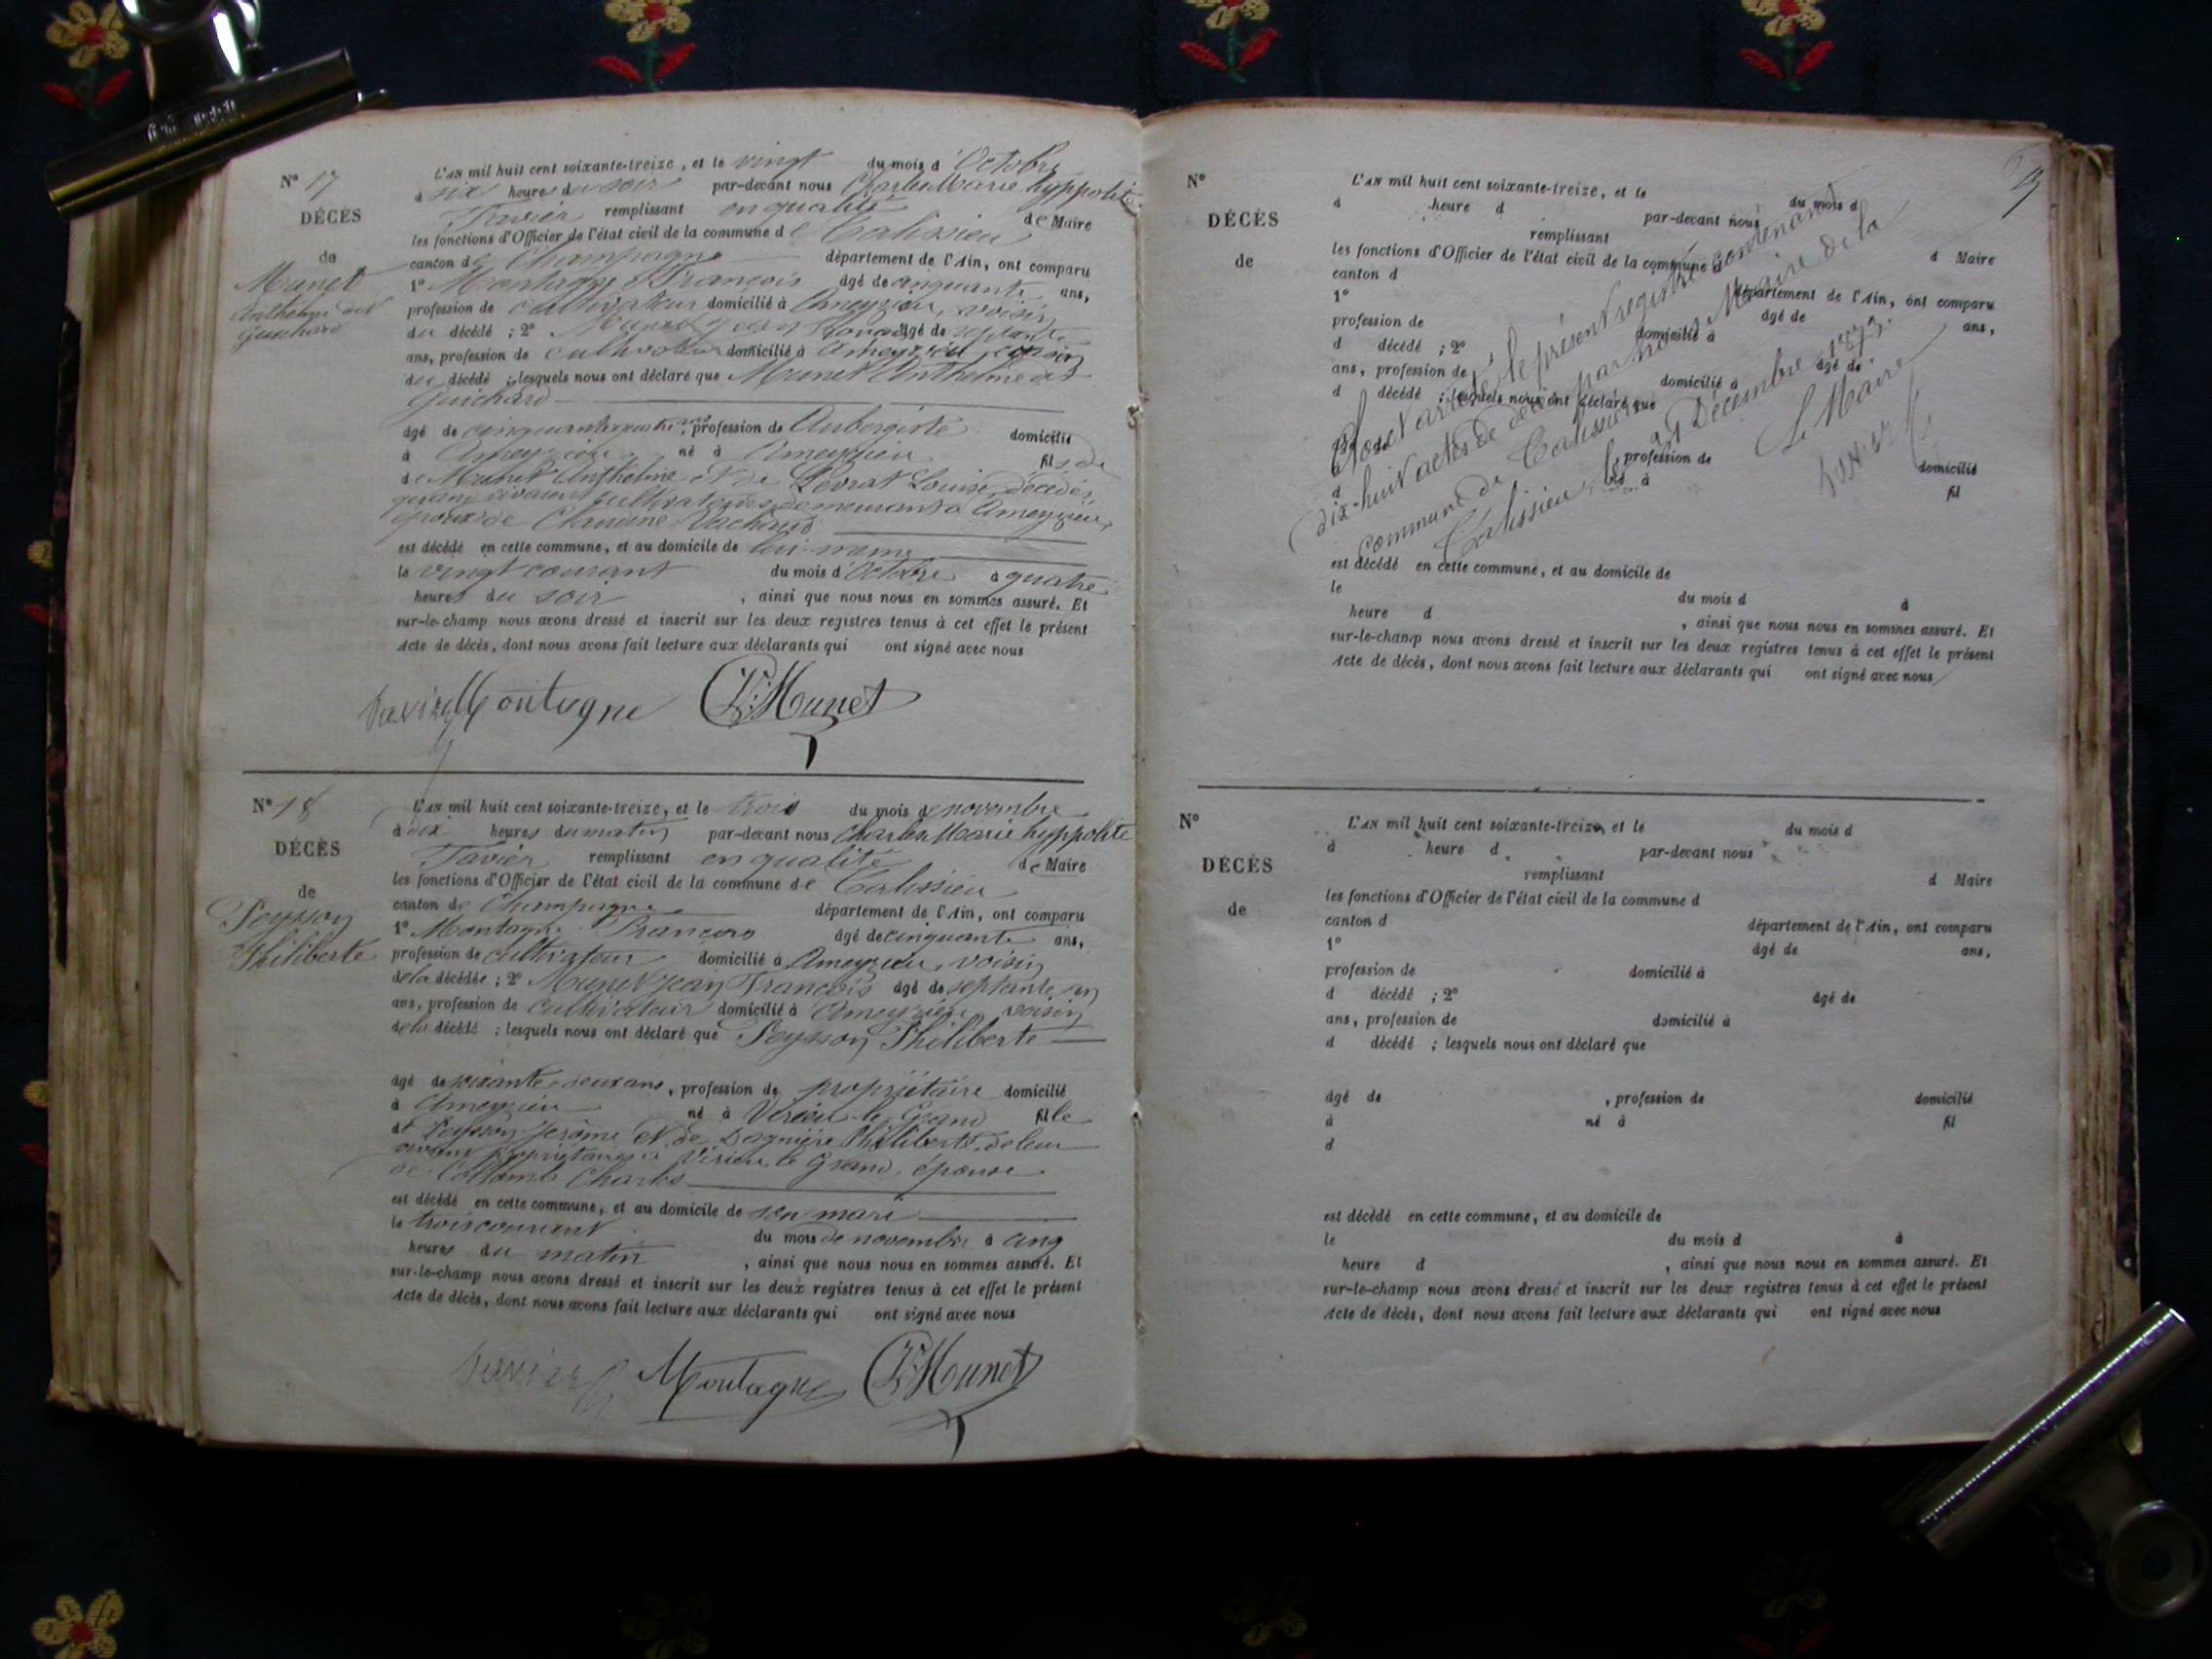 N° 17
DÉCÈS
de
Munet
Anthelme dit
Guichard
L'AN mil huit cent soixante-treize, et le vingt du mois d'Octobre
à six heures du soir par-devant nous Charles Marie hyppolite
Tavier remplissant en qualité de Maire
les fonctions d'Officier de l'état civil de la commune de Talissieu
canton de Champagne département de l'Ain, ont comparu
1° Montagne François âgé de cinquante ans,
profession de cultivateur domicilié à Ameyzieu, voisin
du décédé ; 2° Munet Jean François âgé de septante
ans, profession de cultivateur domicilié à Ameyzieu
du décédé ; lesquels nous ont déclaré que Munet Anthelme dit
Guichard
âgé de cinquante quatre ans, profession de Aubergiste domicilié
à Ameyzieu né à Ameyzieu fils de
de Munet Anthelme et de Levrat Louise, décédés,
quand vivaient cultivateurs demeurant à Ameyzieu,
époux de Claudine Vachaud
est décédé en cette commune, et au domicile de lui-même
le vingt courant du mois d'Octobre à quatre
heures du soir , ainsi que nous nous en sommes assuré. Et
sur-le-champ nous avons dressé et inscrit sur les deux registres tenus à cet effet le présent
Acte de décès, dont nous avons fait lecture aux déclarants qui ont signé avec nous
Tavier Montagne J. Munet
N° 18
DÉCÈS
de
Peysson
Philiberte
L'AN mil huit cent soixante-treize, et le trois du mois de novembre
à dix heures du matin par-devant nous Charles Marie hyppolite
Tavier remplissant en qualité de Maire
les fonctions d'Officier de l'état civil de la commune de Talissieu
canton de Champagne département de l'Ain, ont comparu
1° Montagne François âgé de cinquante ans,
profession de cultivateur domicilié à Ameyzieu, voisin
de la décédée ; 2° Munet Jean François âgé de septante un
ans, profession de cultivateur domicilié à Ameyzieu voisin
de la décédé ; lesquels nous ont déclaré que Peysson Philiberte
âgé de soixante-deux ans, profession de propriétaire domicilié
à Ameyzieu né à Virieu-le-Grand fille
de Peysson Jérôme et de Philiberte de leur
vivant propriétaires à Virieu-le-Grand, épouse
de Collomb Charles
est décédé en cette commune, et au domicile de son mari
le trois courant du mois de novembre à cinq
heures du matin , ainsi que nous nous en sommes assuré. Et
sur-le-champ nous avons dressé et inscrit sur les deux registres tenus à cet effet le présent
Acte de décès, dont nous avons fait lecture aux déclarants qui ont signé avec nous
Tavier Montagne J. Munet
N°
DÉCÈS
de
L'AN mil huit cent soixante-treize, et le du mois d
à heure d par-devant nous
remplissant d Maire
les fonctions d'Officier de l'état civil de la commune d
canton d département de l'Ain, ont comparu
1° âgé de ans,
profession de domicilié à
d décédé ; 2° âgé de
ans, profession de domicilié à
d décédé ; lesquels nous ont déclaré que
âgé de , profession de domicilié
à né à fil
d
Clos et arrêté le présent registre contenant
dix-huit actes de décès par nous Maire de la
commune de Talissieu
Talissieu, le 31 Décembre 1873.
Le Maire
Tavier
est décédé en cette commune, et au domicile de
le du mois d à
heure d , ainsi que nous nous en sommes assuré. Et
sur-le-champ nous avons dressé et inscrit sur les deux registres tenus à cet effet le présent
Acte de décès, dont nous avons fait lecture aux déclarants qui ont signé avec nous
N°
DÉCÈS
de
L'AN mil huit cent soixante-treize, et le du mois d
à heure d par-devant nous
remplissant d Maire
les fonctions d'Officier de l'état civil de la commune d
canton d département de l'Ain, ont comparu
1° âgé de ans,
profession de domicilié à
d décédé ; 2° âgé de
ans, profession de domicilié à
d décédé ; lesquels nous ont déclaré que
âgé de , profession de domicilié
à né à fil
d
est décédé en cette commune, et au domicile de
le du mois d à
heure d , ainsi que nous nous en sommes assuré. Et
sur-le-champ nous avons dressé et inscrit sur les deux registres tenus à cet effet le présent
Acte de décès, dont nous avons fait lecture aux déclarants qui ont signé avec nous